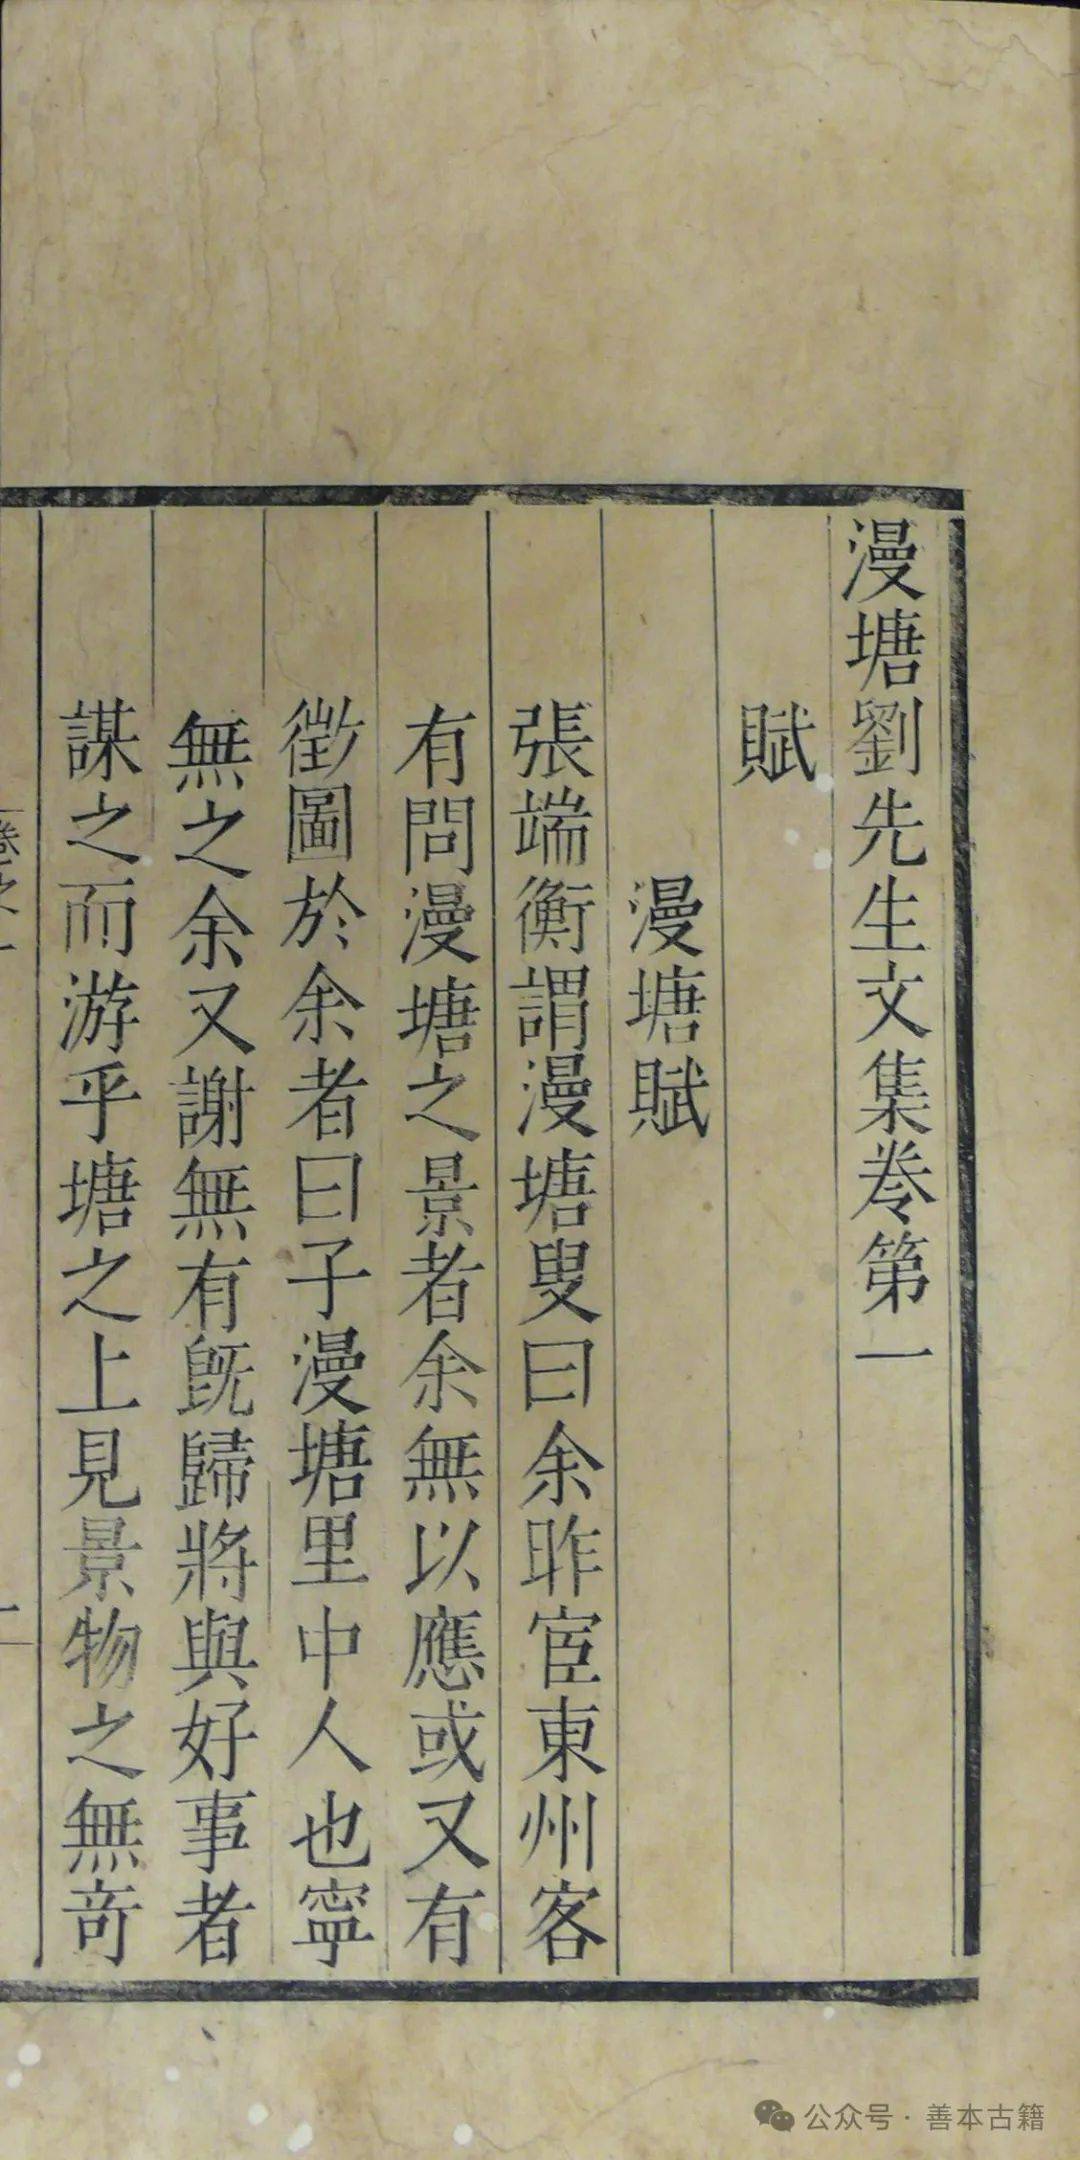 漫塘劉先生文集卷第一
賦
漫塘賦
張端衡謂漫塘叟曰余昨宦東州客
有問漫塘之景者余無以應或又有
徵圖於余者曰子漫塘里中人也寧
無之余又謝無有旣歸將與好事者
謀之而游乎塘之上見景物之無竒
卷之一
一
公众号·善本古籍